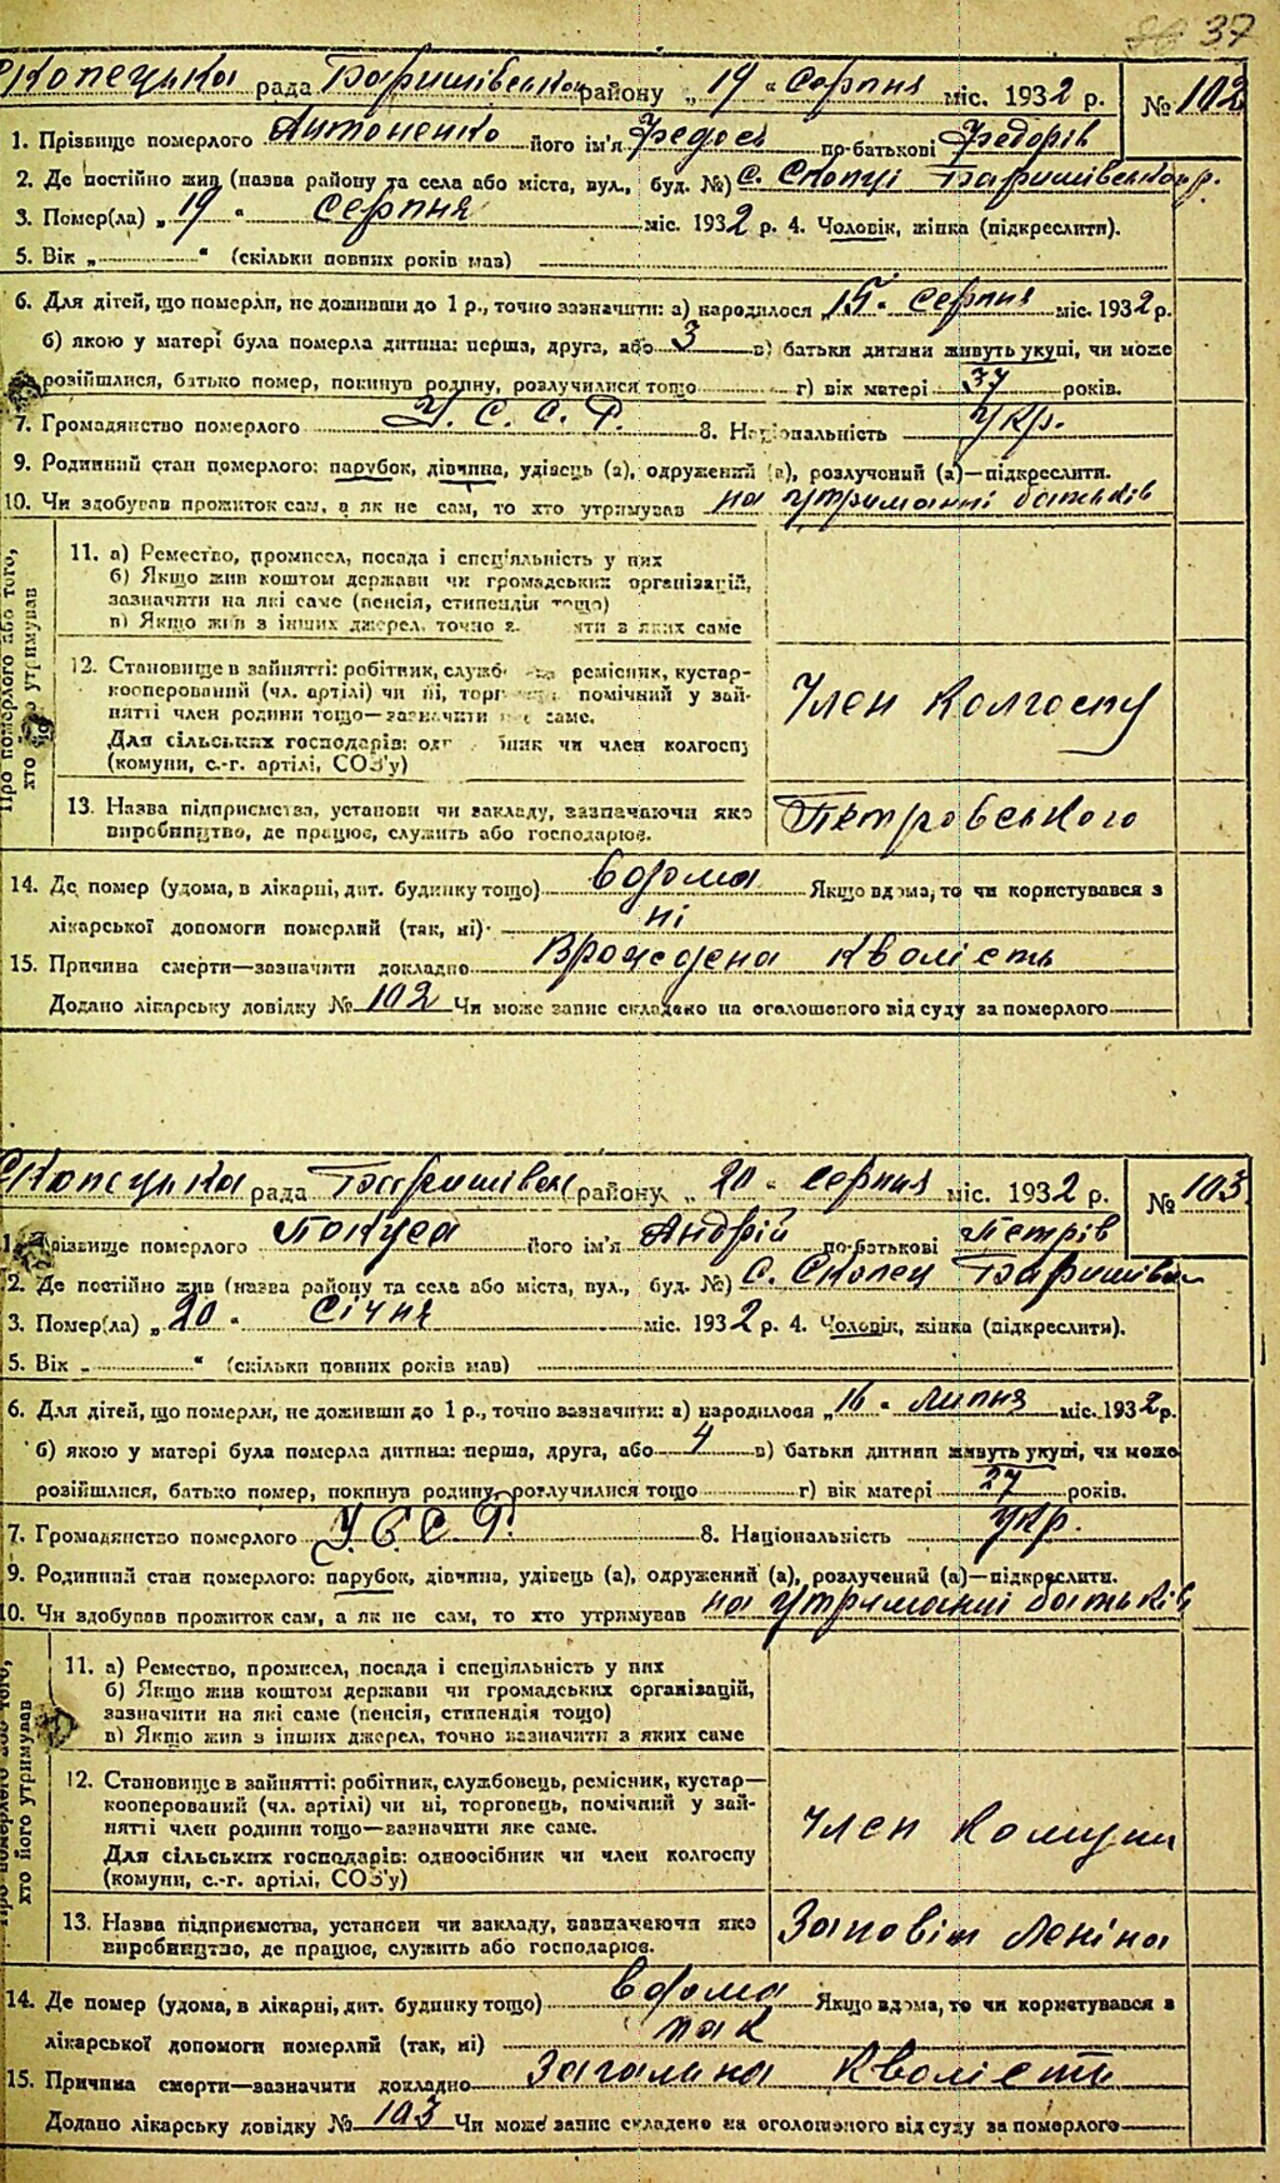 37
Скопецька рада Баришівськ району „19“ Серпня міс. 1932 р. № 102
1. Прізвище померлого Антоненко його ім'я Федось по-батькові Федорів
2. Де постійно жив (назва району та села або міста, вул., буд. №) С. Скопці Баришівського р.
3. Помер(ла) „19“ Серпня міс. 1932 р. 4. Чоловік, жінка (підкреслити).
5. Вік „ “ (скільки повних років мав)
6. Для дітей, що померли, не доживши до 1 р., точно зазначити: а) народилося „15“ Серпня міс. 1932 р.
б) якою у матері була померла дитина: перша, друга, або 3 в) батьки дитини живуть укупі, чи може
розійшлися, батько помер, покинув родину, розлучилися тощо г) вік матері 37 років.
7. Громадянство померлого У. С. С. Р. 8. Національність Укр.
9. Родинний стан померлого: парубок, дівчина, удівець (а), одружений (а), розлучений (а)—підкреслити.
10. Чи здобував прожиток сам, а як не сам, то хто утримував на утриманні батьків
Про померлого або того,
хто утримував
11. а) Ремество, промисел, посада і спеціяльність у них
б) Якщо жив коштом держави чи громадських організацій,
зазначити на які саме (пенсія, стипендія тощо)
в) Якщо жив з інших джерел, точно з яти з яких саме
12. Становище в зайнятті: робітник, служб ремісник, кустар-
кооперований (чл. артілі) чи ні, торг помічний у зай-
нятті член родини тощо—зазначити саме.
Для сільських господарів: од ник чи член колгоспу
(комуни, с.-г. артілі, СОЗ'у)
Член колгоспу
13. Назва підприємства, установи чи закладу, зазначаючи яке
виробництво, де працює, служить або господарює.
Петровського
14. Де помер (удома, в лікарні, дит. будинку тощо) вдома Якщо вдома, то чи користувався з
лікарської допомоги померлий (так, ні) ні
15. Причина смерти—зазначити докладно Врожедена кволість
Додано лікарську довідку № 102 Чи може запис складено на оголошеного від суду за померлого
Скопецька рада Баришівськ району „20“ Серпня міс. 1932 р. № 103
1. Прізвище померлого Покуса його ім'я Андрій по-батькові Петрів
2. Де постійно жив (назва району та села або міста, вул., буд. №) С. Скопец Баришівськ
3. Помер(ла) „20“ Січня міс. 1932 р. 4. Чоловік, жінка (підкреслити).
5. Вік „ “ (скільки повних років мав)
6. Для дітей, що померли, не доживши до 1 р., точно зазначити: а) народилося „16“ Липня міс. 1932 р.
б) якою у матері була померла дитина: перша, друга, або 4 в) батьки дитини живуть укупі, чи може
розійшлися, батько помер, покинув родину, розлучилися тощо г) вік матері 27 років.
7. Громадянство померлого У. С. С. Р. 8. Національність Укр.
9. Родинний стан померлого: парубок, дівчина, удівець (а), одружений (а), розлучений (а)—підкреслити.
10. Чи здобував прожиток сам, а як не сам, то хто утримував на утриманні батьків
Про померлого або того,
хто його утримував
11. а) Ремество, промисел, посада і спеціяльність у них
б) Якщо жив коштом держави чи громадських організацій,
зазначити на які саме (пенсія, стипендія тощо)
в) Якщо жив з інших джерел, точно зазначити з яких саме
12. Становище в зайнятті: робітник, службовець, ремісник, кустар—
кооперований (чл. артілі) чи ні, торговець, помічний у зай-
нятті член родини тощо—зазначити яке саме.
Для сільських господарів: одноосібник чи член колгоспу
(комуни, с.-г. артілі, СОЗ'у)
Член Комуни
13. Назва підприємства, установи чи закладу, зазначаючи яке
виробництво, де працює, служить або господарює.
Заповіт Леніна
14. Де помер (удома, в лікарні, дит. будинку тощо) вдома Якщо вдома, то чи користувався з
лікарської допомоги померлий (так, ні) так
15. Причина смерти—зазначити докладно Загальна кволість
Додано лікарську довідку № 103 Чи може запис складено на оголошеного від суду за померлого